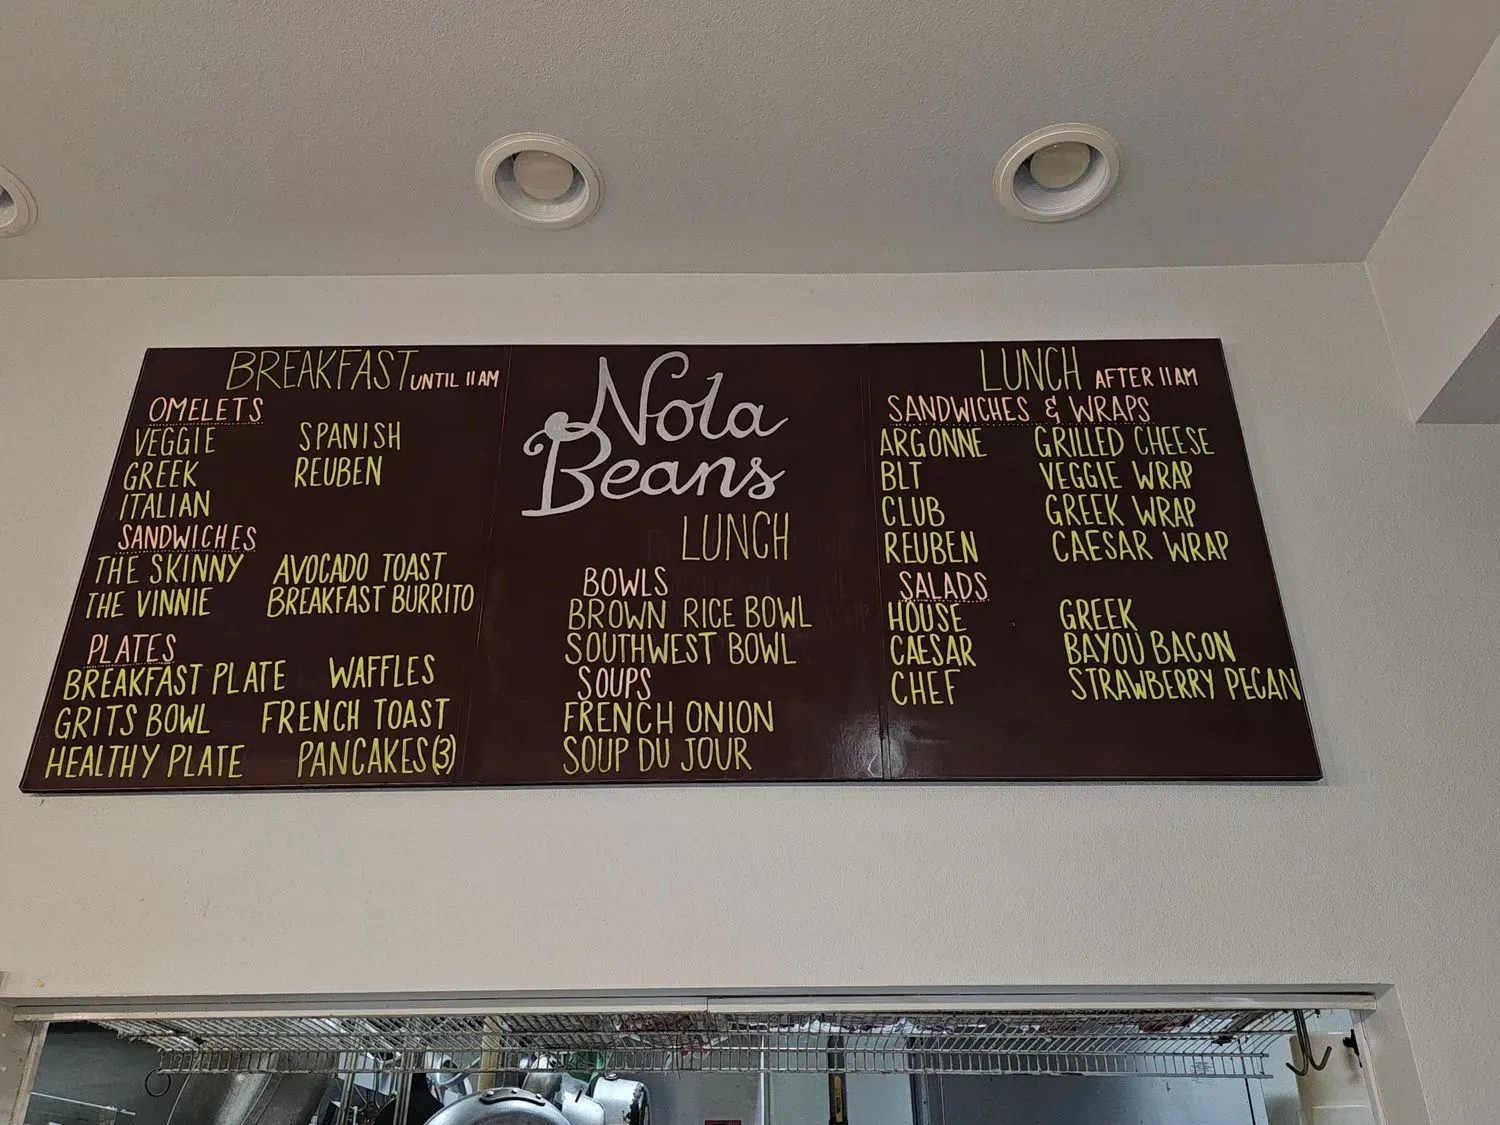 BREAKFAST UNTIL 11AM
OMELETS
VEGGIE SPANISH
GREEK REUBEN
ITALIAN
SANDWICHES
THE SKINNY AVOCADO TOAST
THE VINNIE BREAKFAST BURRITO
PLATES
BREAKFAST PLATE WAFFLES
GRITS BOWL FRENCH TOAST
HEALTHY PLATE PANCAKES(3)
Nola
Beans
LUNCH
BOWLS
BROWN RICE BOWL
SOUTHWEST BOWL
SOUPS
FRENCH ONION
SOUP DU JOUR
LUNCH AFTER 11AM
SANDWICHES & WRAPS
ARGONNE GRILLED CHEESE
BLT VEGGIE WRAP
CLUB GREEK WRAP
REUBEN CAESAR WRAP
SALADS
HOUSE GREEK
CAESAR BAYOU BACON
CHEF STRAWBERRY PECAN